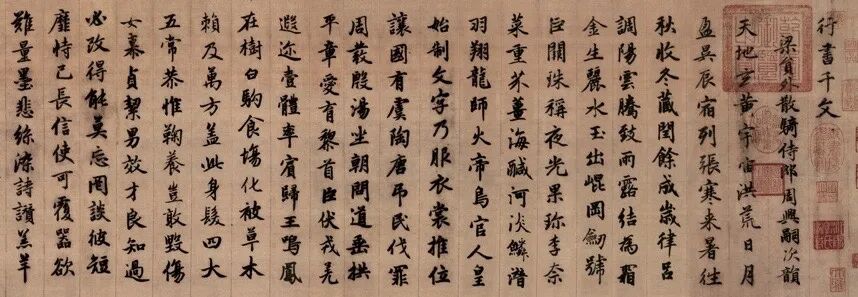 行書千文
梁員外散騎侍郎周興嗣次韻
天地玄黃宇宙洪荒日月
盈昃辰宿列張寒來暑往
秋收冬藏閏餘成歲律呂
調陽雲騰致雨露結為霜
金生麗水玉出崐岡劒號
巨闕珠稱夜光果珍李柰
菜重芥薑海鹹河淡鱗潛
羽翔龍師火帝鳥官人皇
始制文字乃服衣裳推位
讓國有虞陶唐吊民伐罪
周發殷湯坐朝問道垂拱
平章愛育黎首臣伏戎羌
遐邇壹體率賓歸王鳴鳳
在樹白駒食場化被草木
賴及萬方蓋此身髮四大
五常恭惟鞠養豈敢毀傷
女慕貞絜男效才良知過
必改得能莫忘罔談彼短
靡恃己長信使可覆器欲
難量墨悲絲染詩讚羔羊